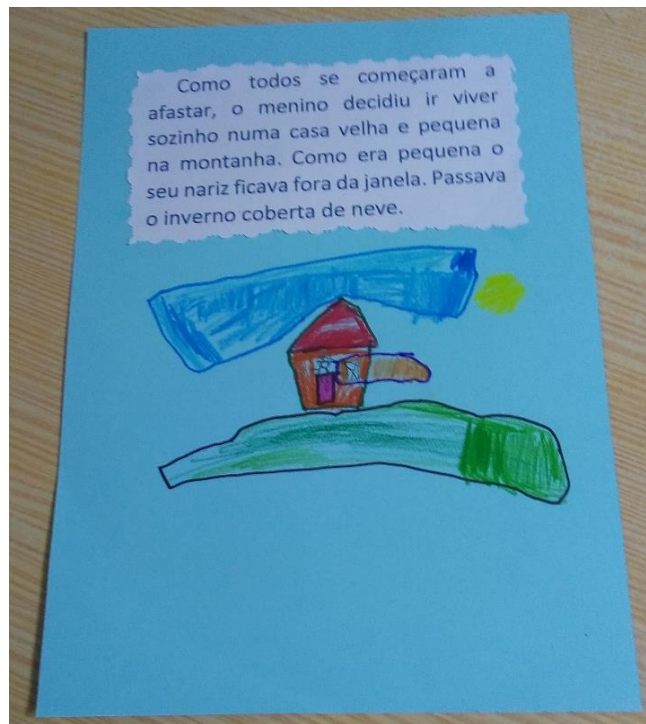 Como todos se começaram a
afastar, o menino decidiu ir viver
sozinho numa casa velha e pequena
na montanha. Como era pequena o
seu nariz ficava fora da janela. Passava
o inverno coberta de neve.